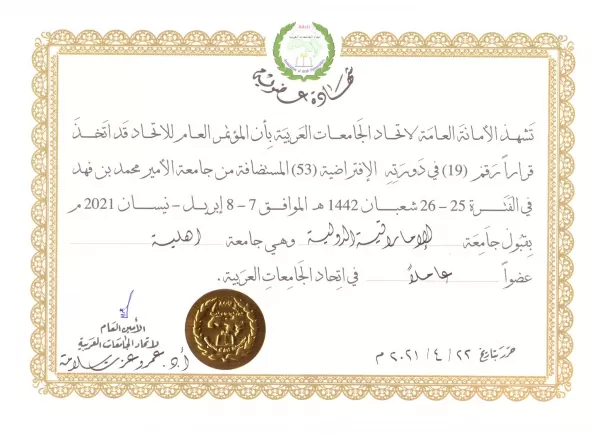 شهادة عضوية
تشهد الأمانة العامة لاتحاد الجامعات العربية بأن المؤتمر العام للاتحاد قد اتخذ
قراراً رقم (19) في دورته الإفتراضية (53) المستضافة من جامعة الأمير محمد بن فهد
في الفترة 25 - 26 شعبان 1442 هـ الموافق 7 - 8 إبريل - نيسان 2021 م
بقبول جامعة الإماراتية الدولية وهي جامعة اهلية
عضواً عاملاً في اتحاد الجامعات العربية.
الأمين العام
لاتحاد الجامعات العربية
أ.د. عمرو عزت سلامة
حرر بتاريخ ٢٢ / ٤ / ٢٠٢١ م